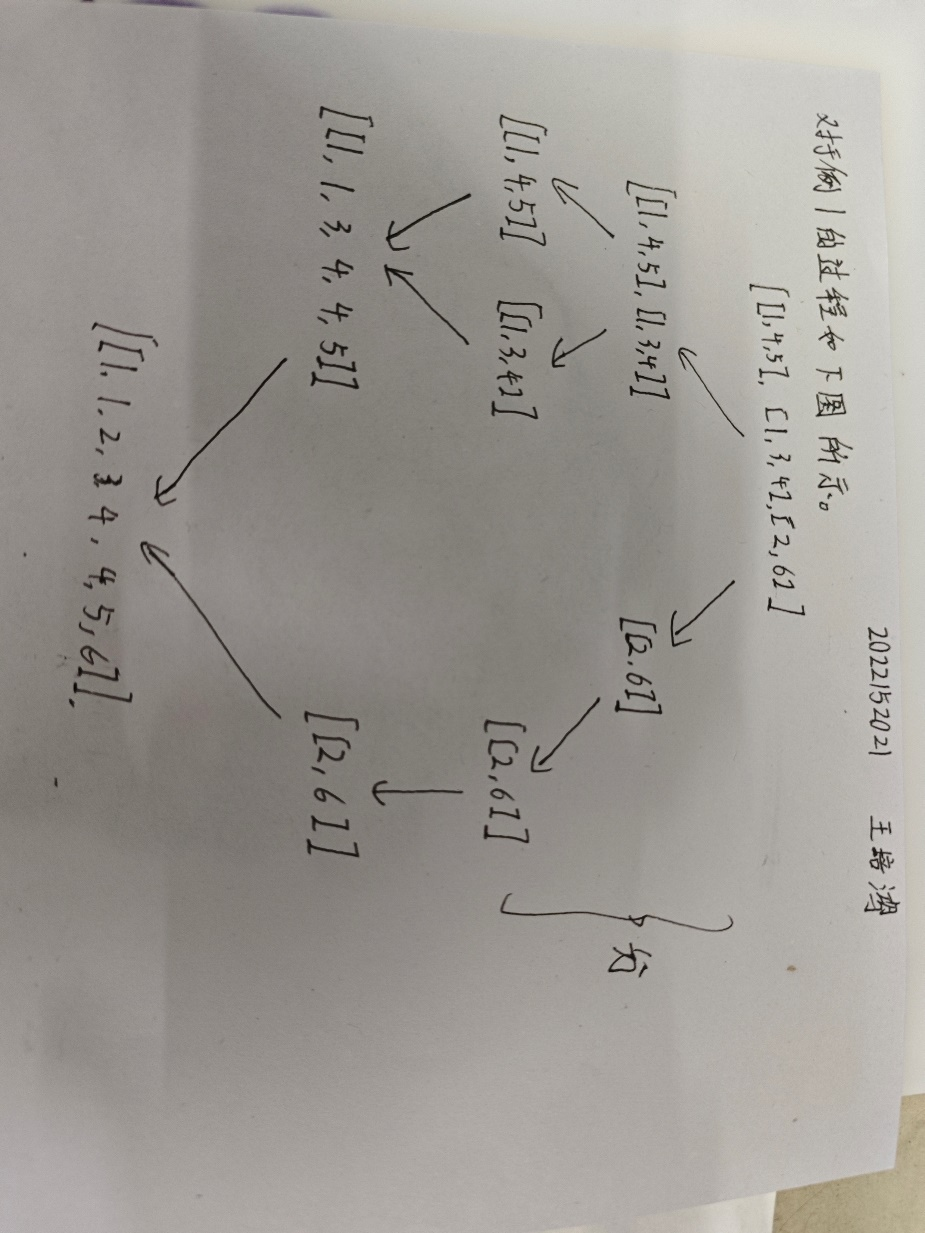 2022152021 王培鸿
对于例1的过程如下图所示。
[[1,4,5],[1,3,4],[2,6]]
[[1,4,5],[1,3,4]] [[2,6]]
[[1,4,5]] [[1,3,4]] [[2,6]]
分
[[1,1,3,4,4,5]] [[2,6]]
[[1,1,2,3,4,4,5,6]].